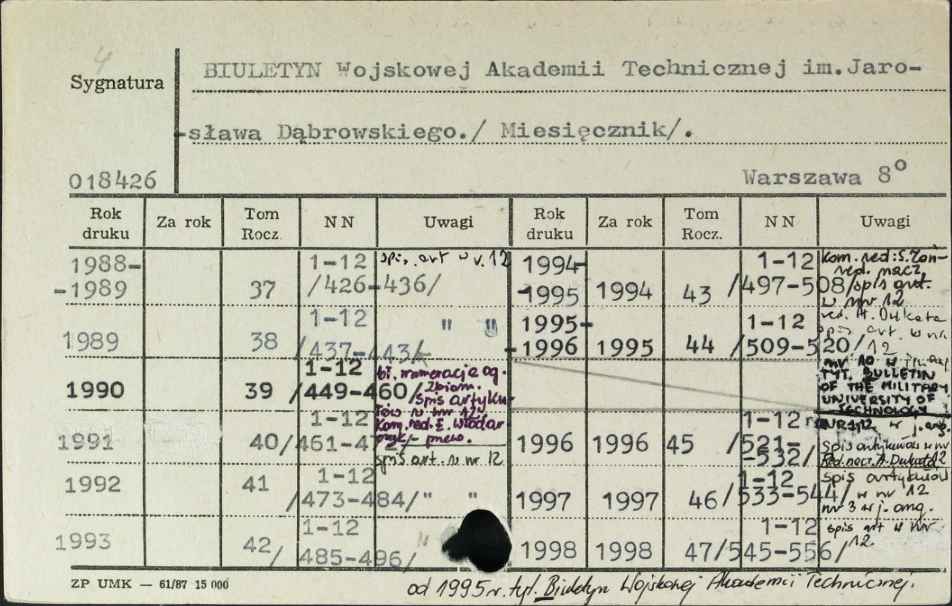 4
Sygnatura
BIULETYN Wojskowej Akademii Technicznej im.Jaro-
-sława Dąbrowskiego./ Miesięcznik/.
018426
Warszawa 8°
Rok druku Za rok Tom Rocz. NN Uwagi Rok druku Za rok Tom Rocz. NN Uwagi
1988-
-1989 37 1-12 /426-436/ spis. art w n.12
1989 38 1-12 /437- " "
1990 39 1-12 /449-460/ zbiom.
spis artyku-
łów w nr 12
Kom. red. E. Włodar
1991 40 1-12 /461-47
spis art. w nr 12
1992 41 1-12 /473-484/ " "
1993 42/ 1-12 485-496/ "
1994-
-1995 1994 43 1-12 /497-508/ Kom. red: S.
red. nacz.
spis art.
w nr 12
1995-
-1996 1995 44 1-12 /509-520/ red. A. Dukata
spis art. w nr
12
nr 10 w
TYT. BULLETIN
OF THE MILITARY
UNIVERSITY OF
TECHNOLOGY
1996 1996 45 1-12 /521-
-532/ w j. ang.
spis artykułów w nr
Red. nacz. A. Dukata 12
1997 1997 46 1-12 /533-544/ spis artykułów
w nr 12
nr 3 w j. ang.
1998 1998 47 1-12 /545-556/ spis art w nr
12
ZP UMK — 61/87 15 000
od 1995 r. tyt. Biuletyn Wojskowej Akademii Technicznej.